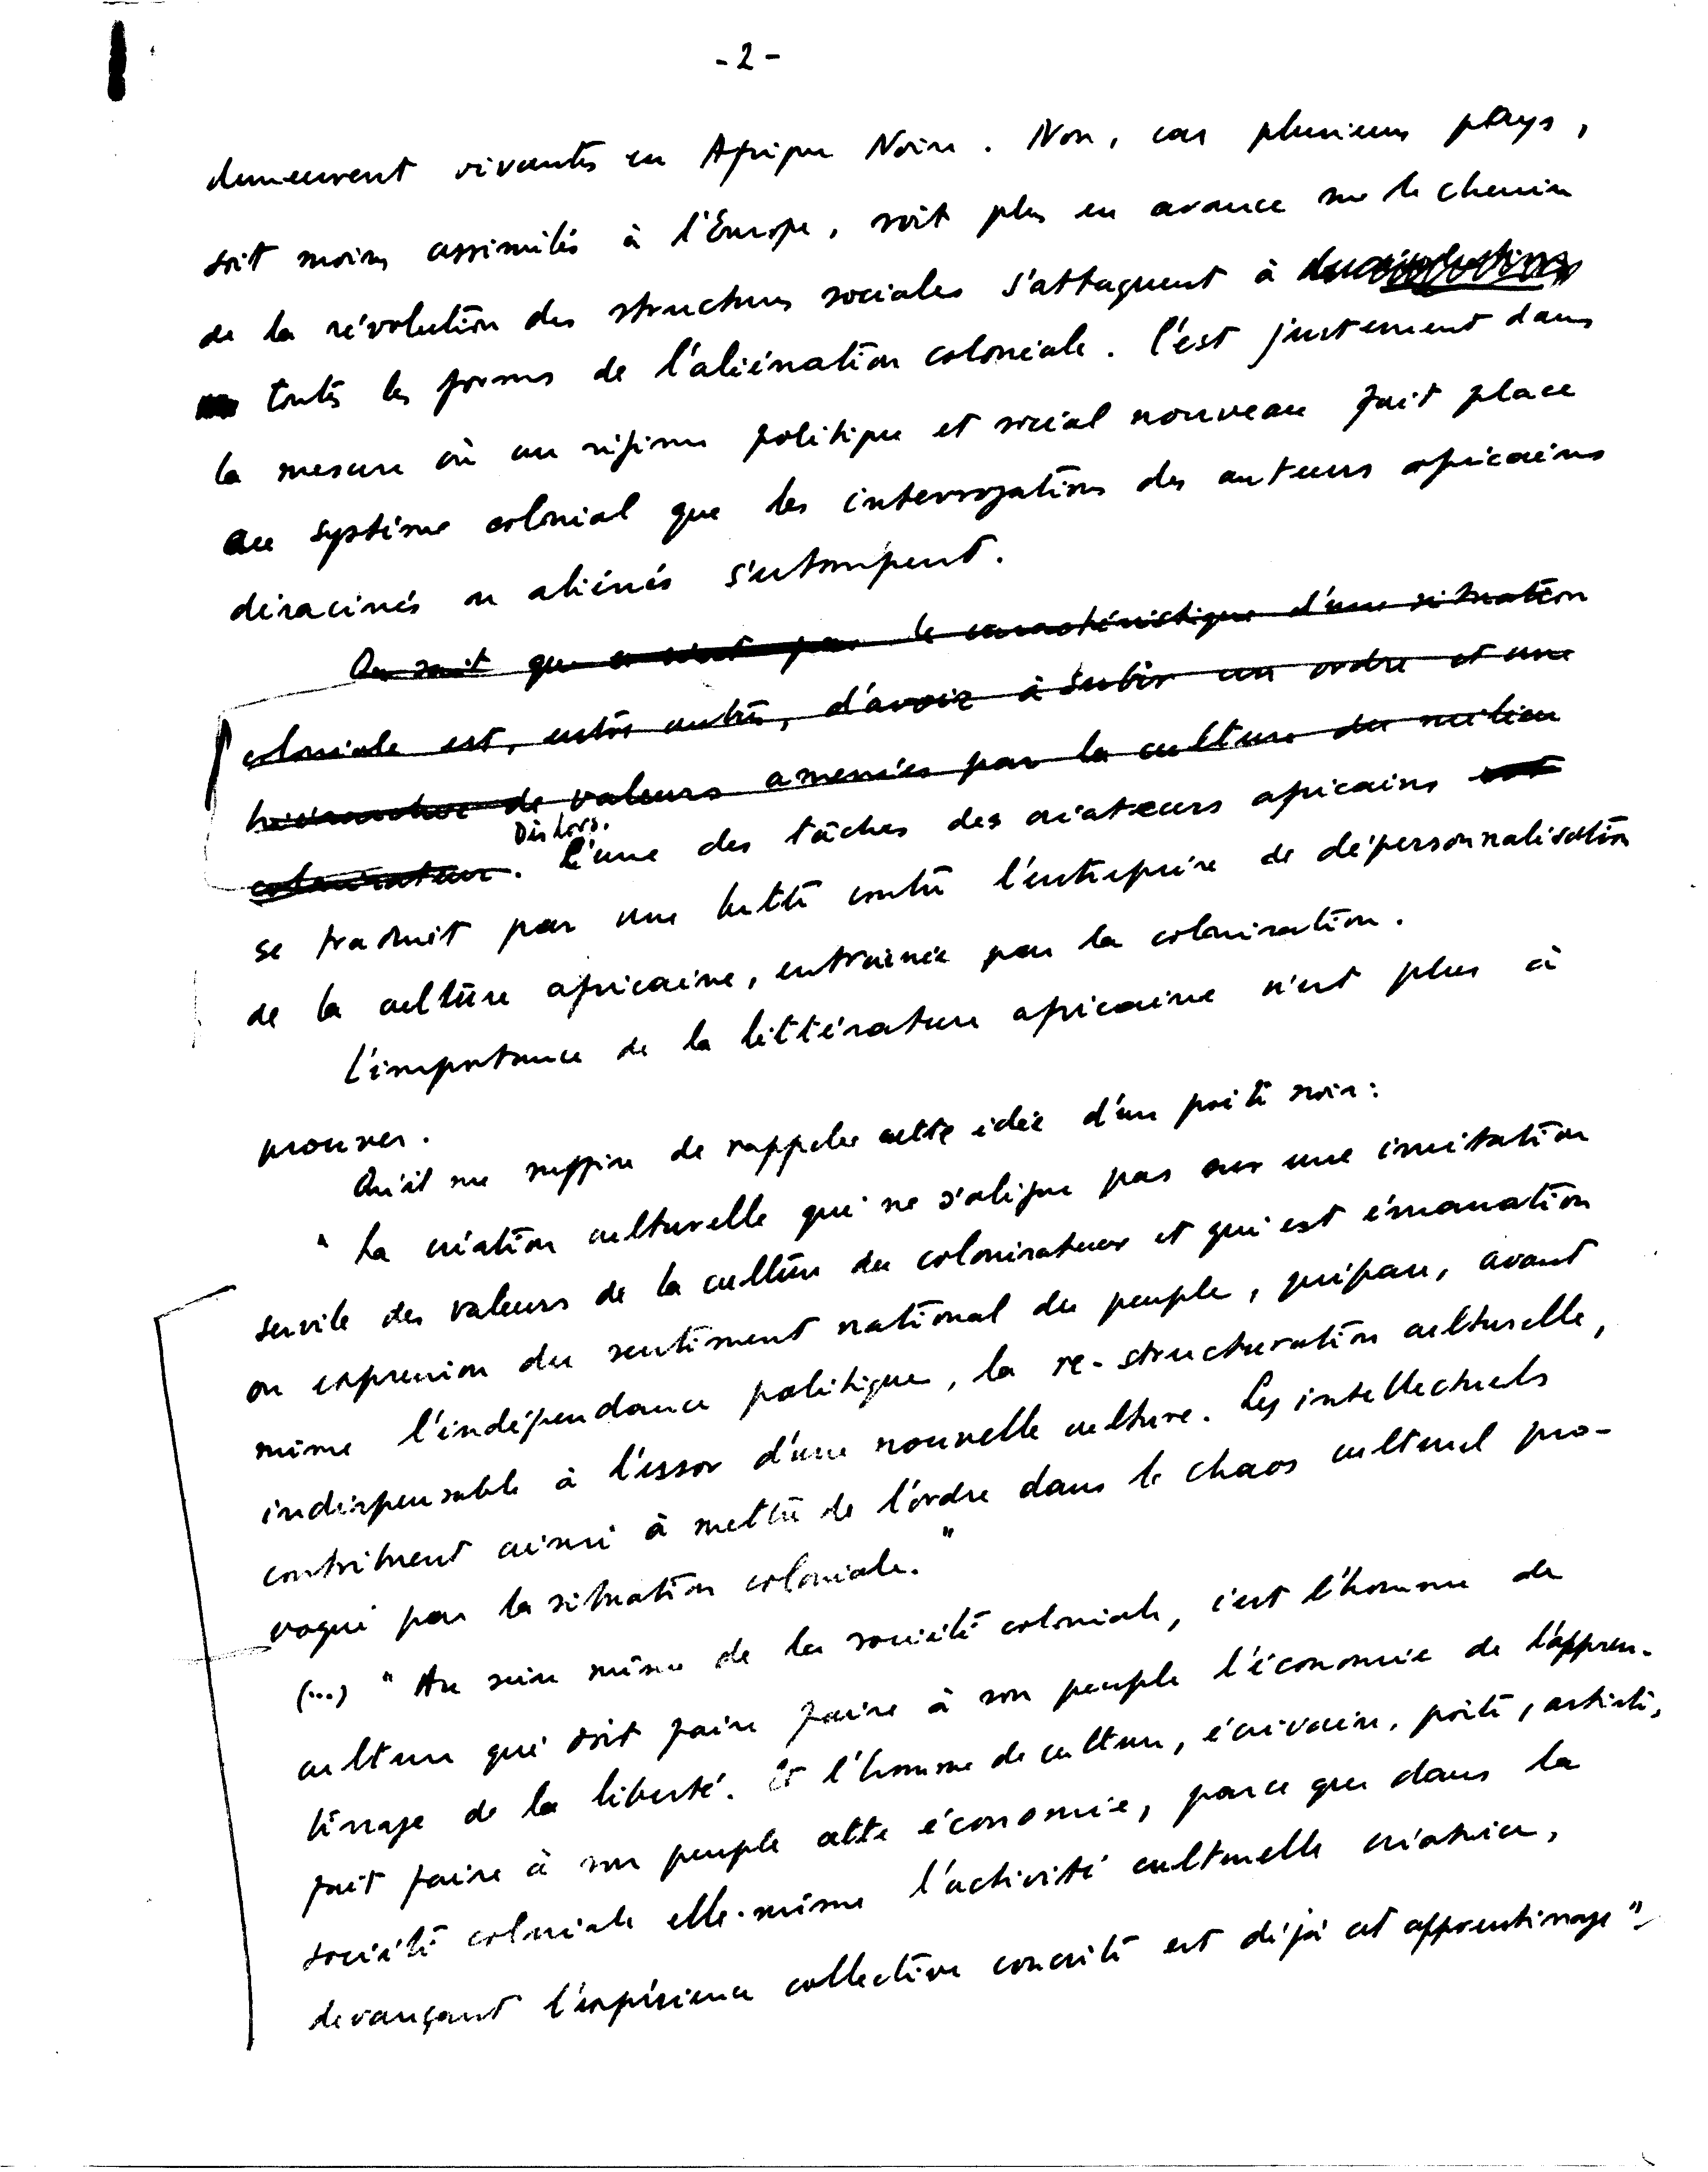 - 2 -
demeurent vivantes en Afrique Noire. Non, car plusieurs pays,
soit moins assimilés à l'Europe, soit plus en avance sur le chemin
de la révolution des structures sociales s'attaquent à
toutes les formes de l'aliénation coloniale. C'est justement dans
la mesure où un régime politique et social nouveau fait place
au système colonial que les interrogations des auteurs africains
déracinés ou aliénés s'estompent.
On sait que le caractéristique d'une situation
coloniale est, entre autres, d'avoir à subir un ordre et une
hiérarchie de valeurs amenées par la culture du milieu
colonisateur. Dès lors, l'une des tâches des créateurs africains est
se traduit par une lutte contre l'entreprise de dépersonnalisation
de la culture africaine, entraînée par la colonisation.
L'importance de la littérature africaine n'est plus à
prouver.
Qu'il me suffise de rappeler cette idée d'un poète noir:
" La création culturelle qui ne s'aligne pas sur une imitation
servile des valeurs de la culture du colonisateur et qui est émanation
ou expression du sentiment national du peuple, prépare, avant
même l'indépendance politique, la re-structuration culturelle,
indispensable à l'essor d'une nouvelle culture. Les intellectuels
contribuent ainsi à mettre de l'ordre dans le chaos culturel pro-
voqué par la situation coloniale."
(...) " Au sein même de la société coloniale, c'est l'homme de
culture qui doit faire faire à son peuple l'économie de l'appren-
tissage de la liberté. Et l'homme de culture, écrivain, poète, artiste,
fait faire à son peuple cette économie, parce que dans la
société coloniale elle-même l'activité culturelle créatrice,
devançant l'expérience collective concrète est déjà cet apprentissage"